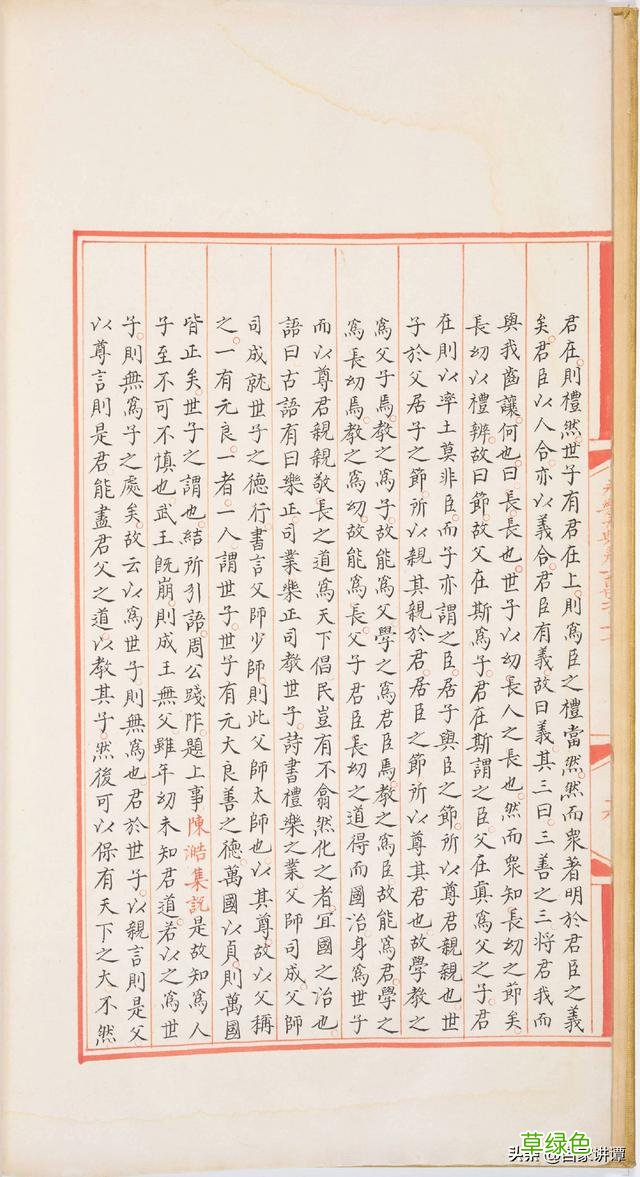 君在則禮然世子有君在上則爲臣之禮當然然而衆著明於君臣之義
矣君臣以人合亦以義合君臣有義故曰義其三曰三善之三將君我而
與我齒讓何也曰長長也世子以幼長人之長也然而衆知長幼之節矣
長幼以禮辨故曰節故父在斯爲子君在斯謂之臣父在眞爲父之子君
在則以率土莫非臣而子亦謂之臣居子與臣之節所以尊君親親也世
子於父居子之節所以親其親於君居臣之節所以尊其君也故學教之
爲父子焉教之爲子故能爲父學之爲君臣焉教之爲臣故能爲君學之
爲長幼焉教之爲幼故能爲長父子君臣長幼之道得而國治身爲世子
而以尊君親親敬長之道爲天下倡民豈有不翕然化之者宜國之治也
語曰古語有曰樂正司業樂正司教世子詩書禮樂之業父師司成父師
司成就世子之德行書言父師少師則此父師太師也以其尊故以父稱
之一有元良一者一人謂世子世子有元大良善之德萬國以貞則萬國
皆正矣世子之謂也結所引語周公踐阼題上事陳澔集説是故知爲人
子至不可不慎也武王既崩則成王無父雖年幼未知君道若以之爲世
子則無爲子之處矣故云以爲世子則無爲也君於世子以親言則是父
以尊言則是君能盡君父之道以教其子然後可以保有天下之大不然
草绿色
头条 @百家讲谭